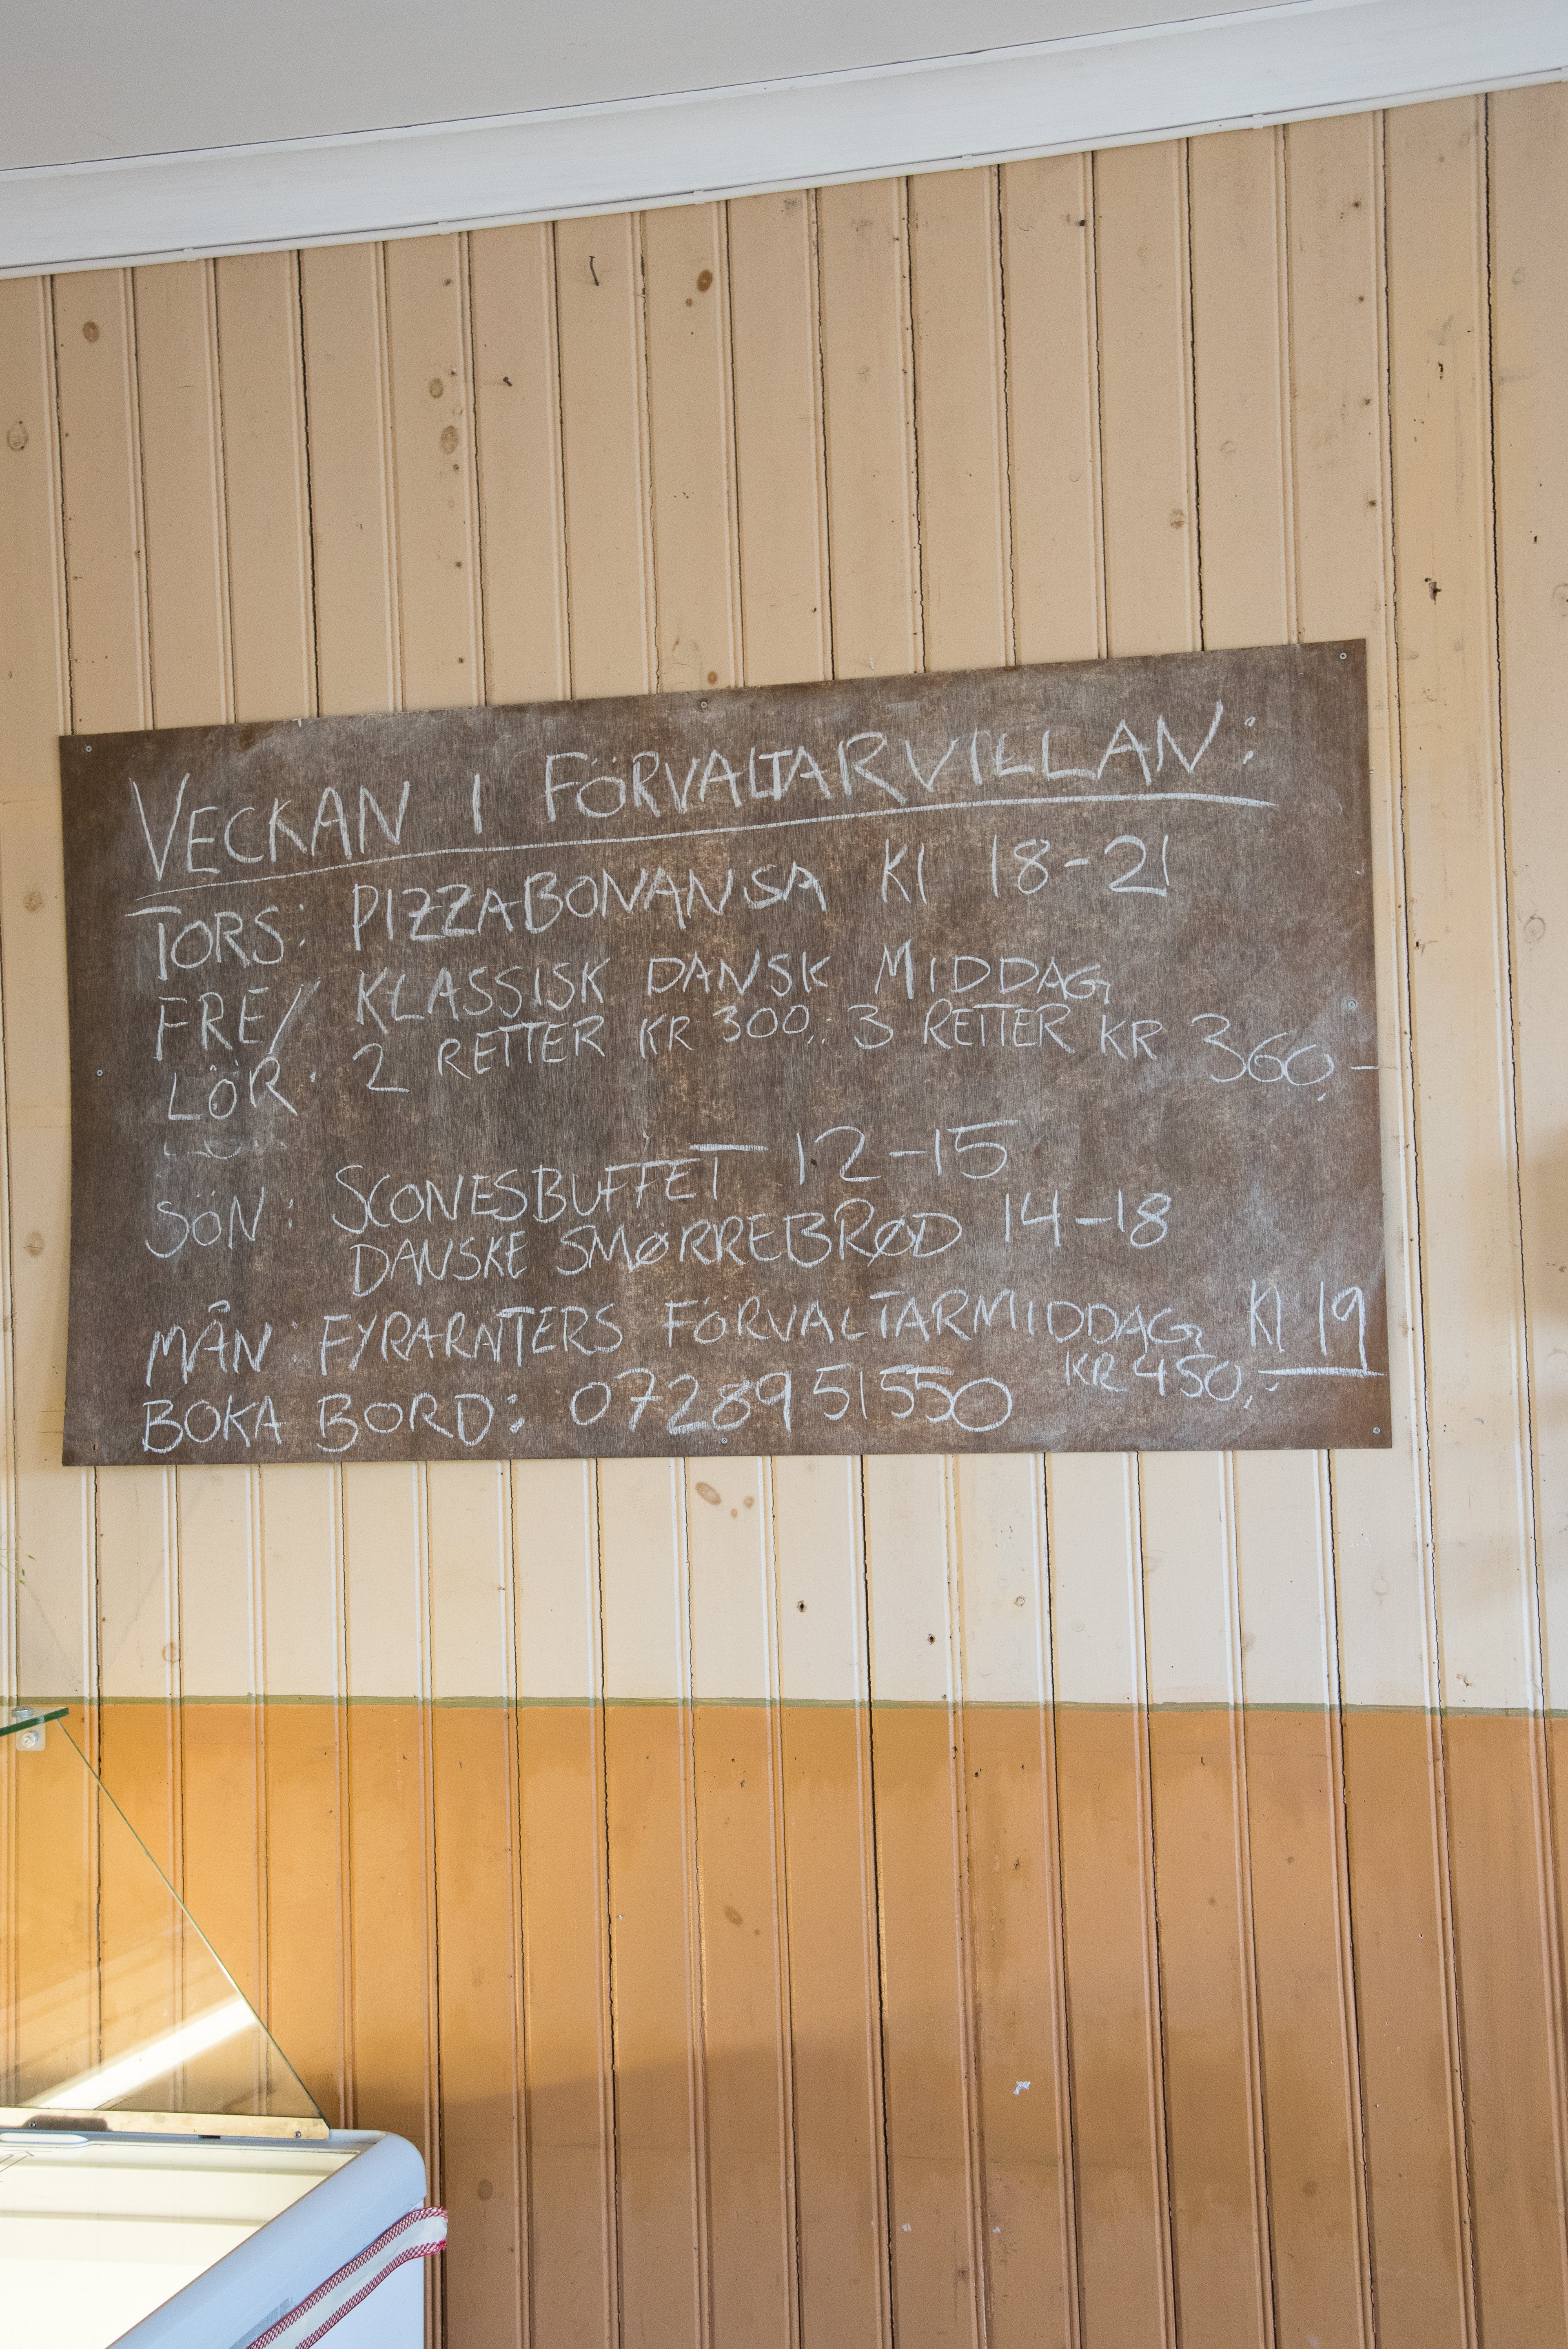 VECKAN I FÖRVALTARVILLAN:
TORS: PIZZABONANSA Kl 18-21
FRE/ KLASSISK DANSK MIDDAG
LÖR: 2 RETTER KR 300,. 3 RETTER KR 360,-
SÖN: SCONESBUFFET 12-15
DANSKE SMØRREBRØD 14-18
MÅN: FYRARÄTTERS FÖRVALTARMIDDAG Kl 19
KR 450,-
BOKA BORD: 0728951550